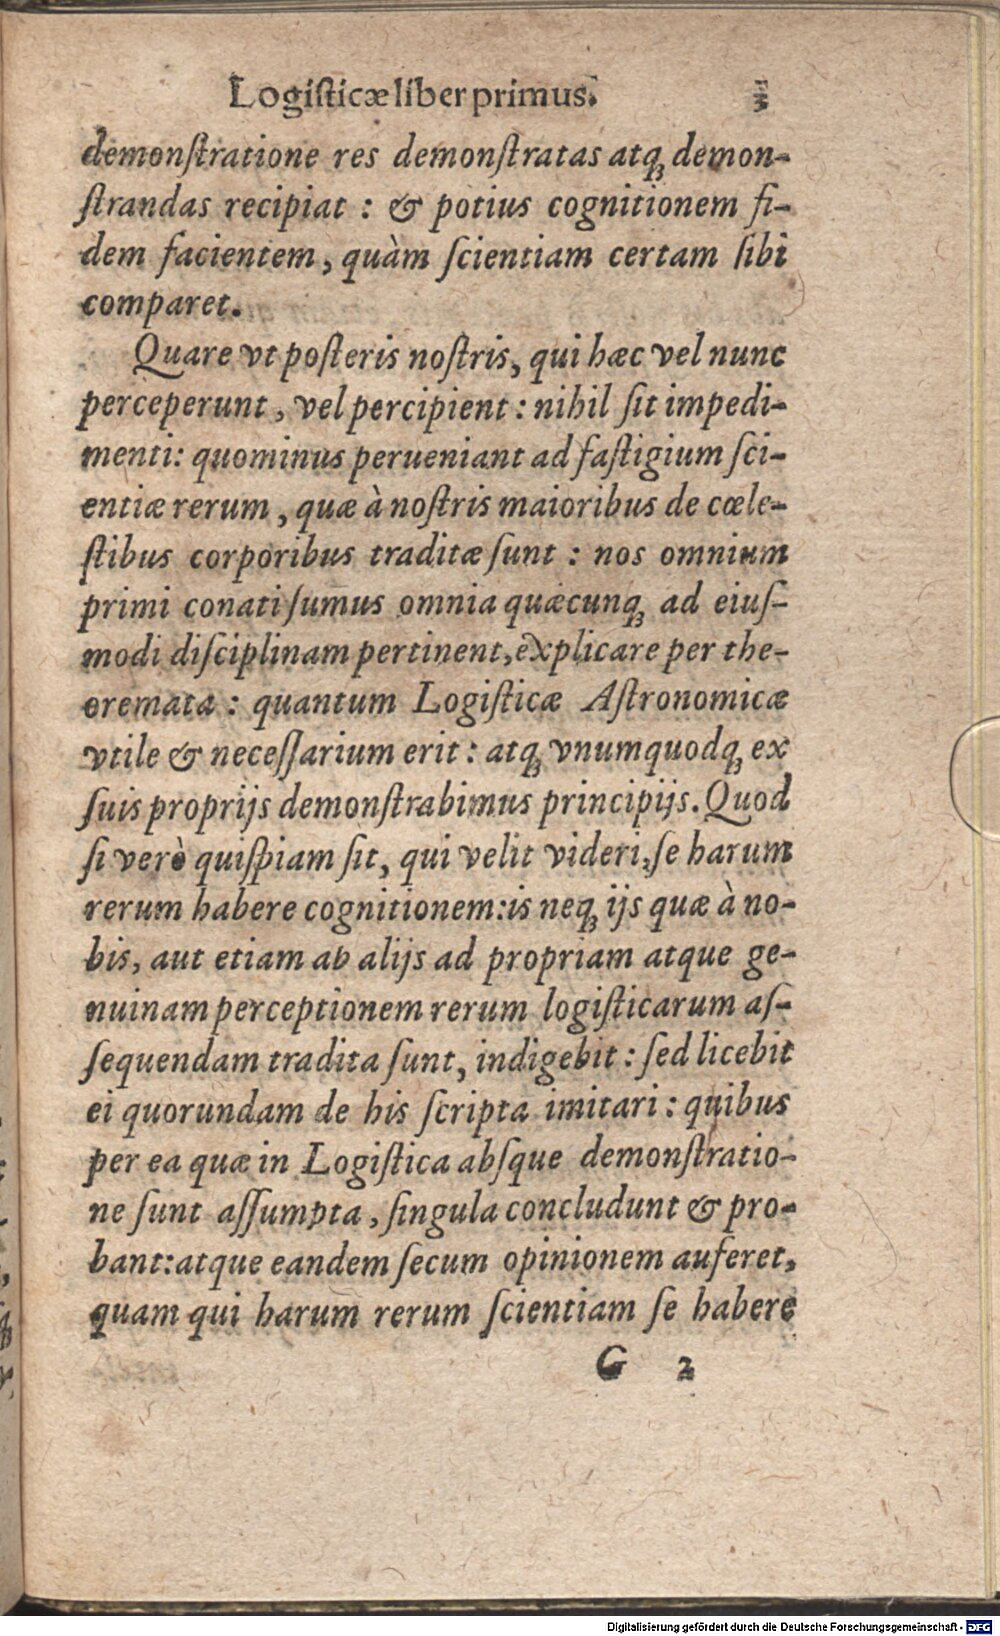 Logiſticæ liber primus.
demonſtratione res demonſtratas atq; demon-
ſtrandas recipiat : & potius cognitionem fi-
dem facientem, quàm ſcientiam certam ſibi
comparet.
Quare vt poſteris noſtris, qui hæc vel nunc
perceperunt, vel percipient : nihil ſit impedi-
menti: quominus perueniant ad faſtigium ſci-
entiæ rerum, quæ à noſtris maioribus de cœle-
ſtibus corporibus traditæ ſunt : nos omnium
primi conati ſumus omnia quæcunq; ad eiuſ-
modi diſciplinam pertinent, explicare per the-
oremata : quantum Logiſticæ Aſtronomicæ
vtile & neceſſarium erit : atq; vnumquodq; ex
ſuis proprijs demonſtrabimus principijs. Quod
ſi verò quiſpiam ſit, qui velit videri, ſe harum
rerum habere cognitionem: is neq; ijs quæ à no-
bis, aut etiam ab alijs ad propriam atque ge-
nuinam perceptionem rerum logiſticarum aſ-
ſequendam tradita ſunt, indigebit : ſed licebit
ei quorundam de his ſcripta imitari : quibus
per ea quæ in Logiſtica abſque demonſtratio-
ne ſunt aſſumpta, ſingula concludunt & pro-
bant: atque eandem ſecum opinionem auferet,
quam qui harum rerum ſcientiam ſe habere
G 2
Digitalisierung gefördert durch die Deutsche Forschungsgemeinschaft - DFG